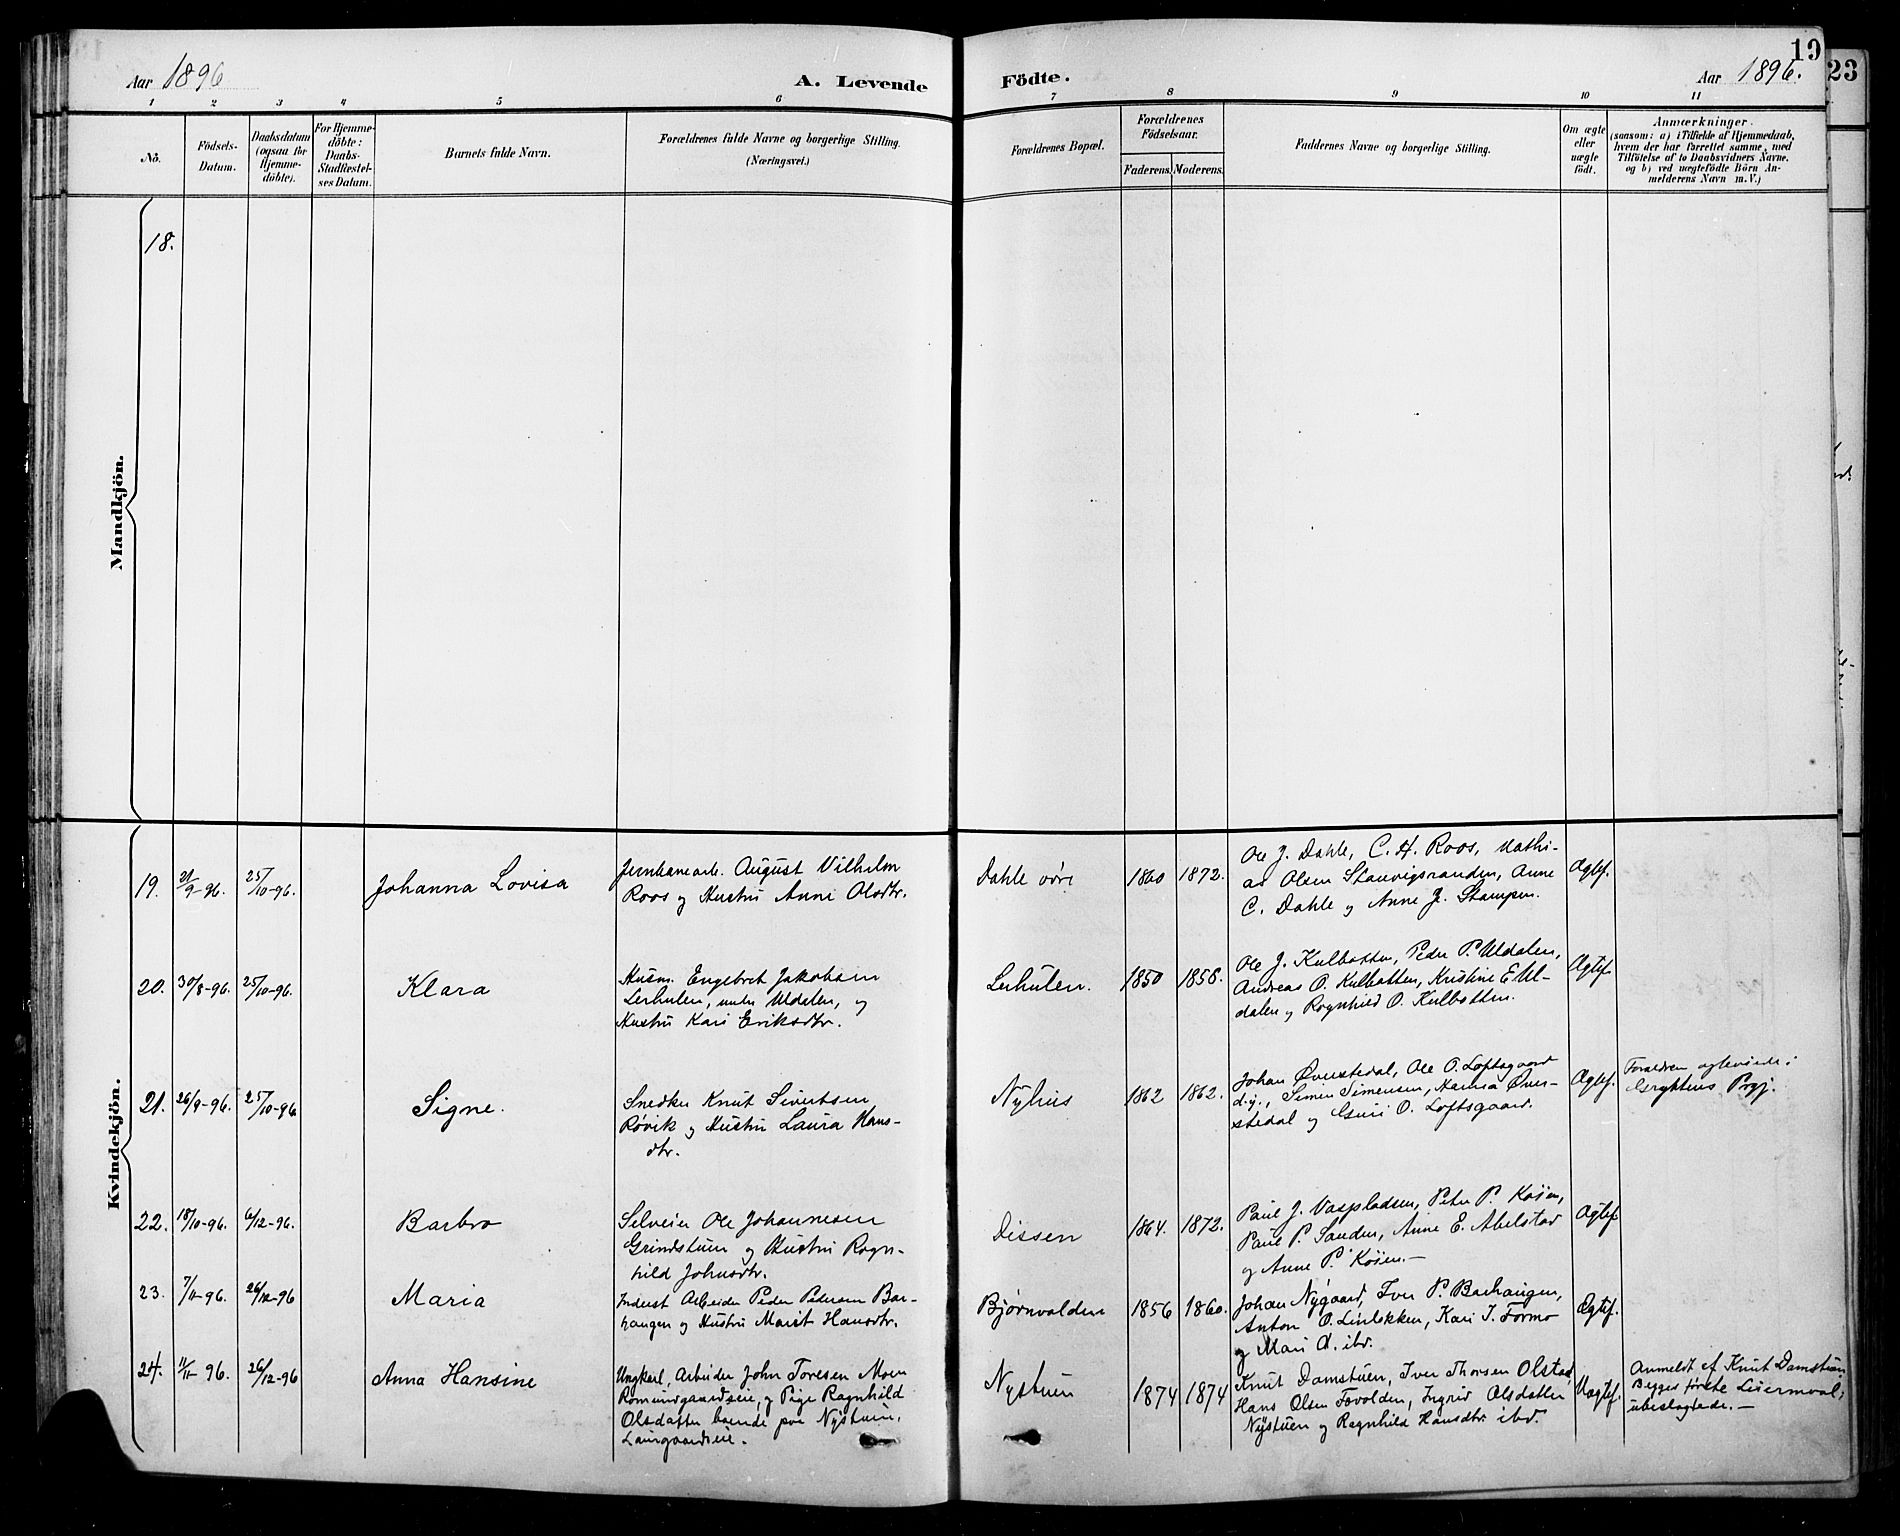 19
23
Aar 1896
A. Levende Födte.
Aar 1896.
1 2 3 4 5 6 7 8 9 10 11
No.
Födsels-
Datum.
Daabsdatum
(ogsaa for
Hjemme-
döbte).
For Hjemme-
döbte:
Daabs-
Stadfæstel-
ses Datum.
Barnets fulde Navn.
Forældrenes fulde Navne og borgerlige Stilling.
(Næringsvei.)
Forældrenes Bopæl.
Forældrenes
Födselsaar.
Faderens. Moderens.
Faddernes Navne og borgerlige Stilling.
Om ægte
eller
uægte
födt.
Anmærkninger.
(saasom: a) i Tilfælde af Hjemmedaab,
hvem der har forrettet samme, med
Tilföielse af to Daabsvidners Navne.
og b) ved uægtefödte Börn An-
melderens Navn m.V.)
Mandkjön.
18.
Kvindekjön.
19.
21/9-96.
25/10-96.
Johanna Lovisa
Jernbanearb. August Vilhelm
Roos og Hustru Anne Olsdtr.
Dahle øvre
1860
1872.
Ole J. Dahle, C. H. Roos, Mathi-
as Olsen Stauvigsranden, Anne
C. Dahle og Anne J. Stampen.
Ægtef.
20.
30/8-96.
25/10-96.
Klara
Husm. Engebret Jakobsen
Lerhulen, under Uldalen, og
Hustru Kari Eriksdtr.
Lerhulen.
1850
1858.
Ole J. Kulbotten, Peder P. Uldalen,
Andreas O. Kulbotten, Kristine E. Ul-
dalen og Ragnhild O. Kulbotten.
Ægtef.
21.
26/9-96.
25/10-96
Signe.
Snedker Knut Sivertsen
Rovik og Hustru Laura Hans-
dtr.
Nyhus
1862
1862.
Johan Øverstedal, Ole O. Loftsgaard
d.y., Simen Simensen, Hanna Øver-
stedal og Guri O. Loftsgaard.
Ægtef.
Forældren ægteviede i
Gryttens Prgj.
22.
18/10-96.
6/12-96.
Barbro
Selveier Ole Johannesen
Grindstuen og Hustru Ragn-
hild Johnsdtr.
Dissen
1864.
1872.
Paul J. Vaspladsen, Peter P. Køien,
Paul P. Sanden, Anne E. Abelstad
og Anne P. Køien.—
Ægtef
23.
7/11-96.
26/12-96
Maria
Inderst Arbeider Peder Pedersen Bar-
hangen og Hustru Marit Hansdtr.
Bjørnvolden
1856
1860.
Johan Nygaard, Iver P. Barhaugen,
Anton O. Linløkken, Kari I. Formo
og Mari A. ibd.
Ægtef.
24.
11/11 96.
26/12-96
Anna Hansine
Ungkarl, Arbeider John Toresen Moen
Romundgaardseie, og Pige Ragnhild
Olsdatter boende paa Nystuen,
Laurgaardseie.
Nystuen
1874
1874
Knut Damstuen, Iver Thorsen Olstad,
Hans Olsen Fovolden, Ingrid Olsdatter
Nystuen og Ragnhild Hansdtr ibd.
Uægtef.
Anmeldt af Knut Damstuen.
Begges første Leiermaal;
ubeslægtede.—